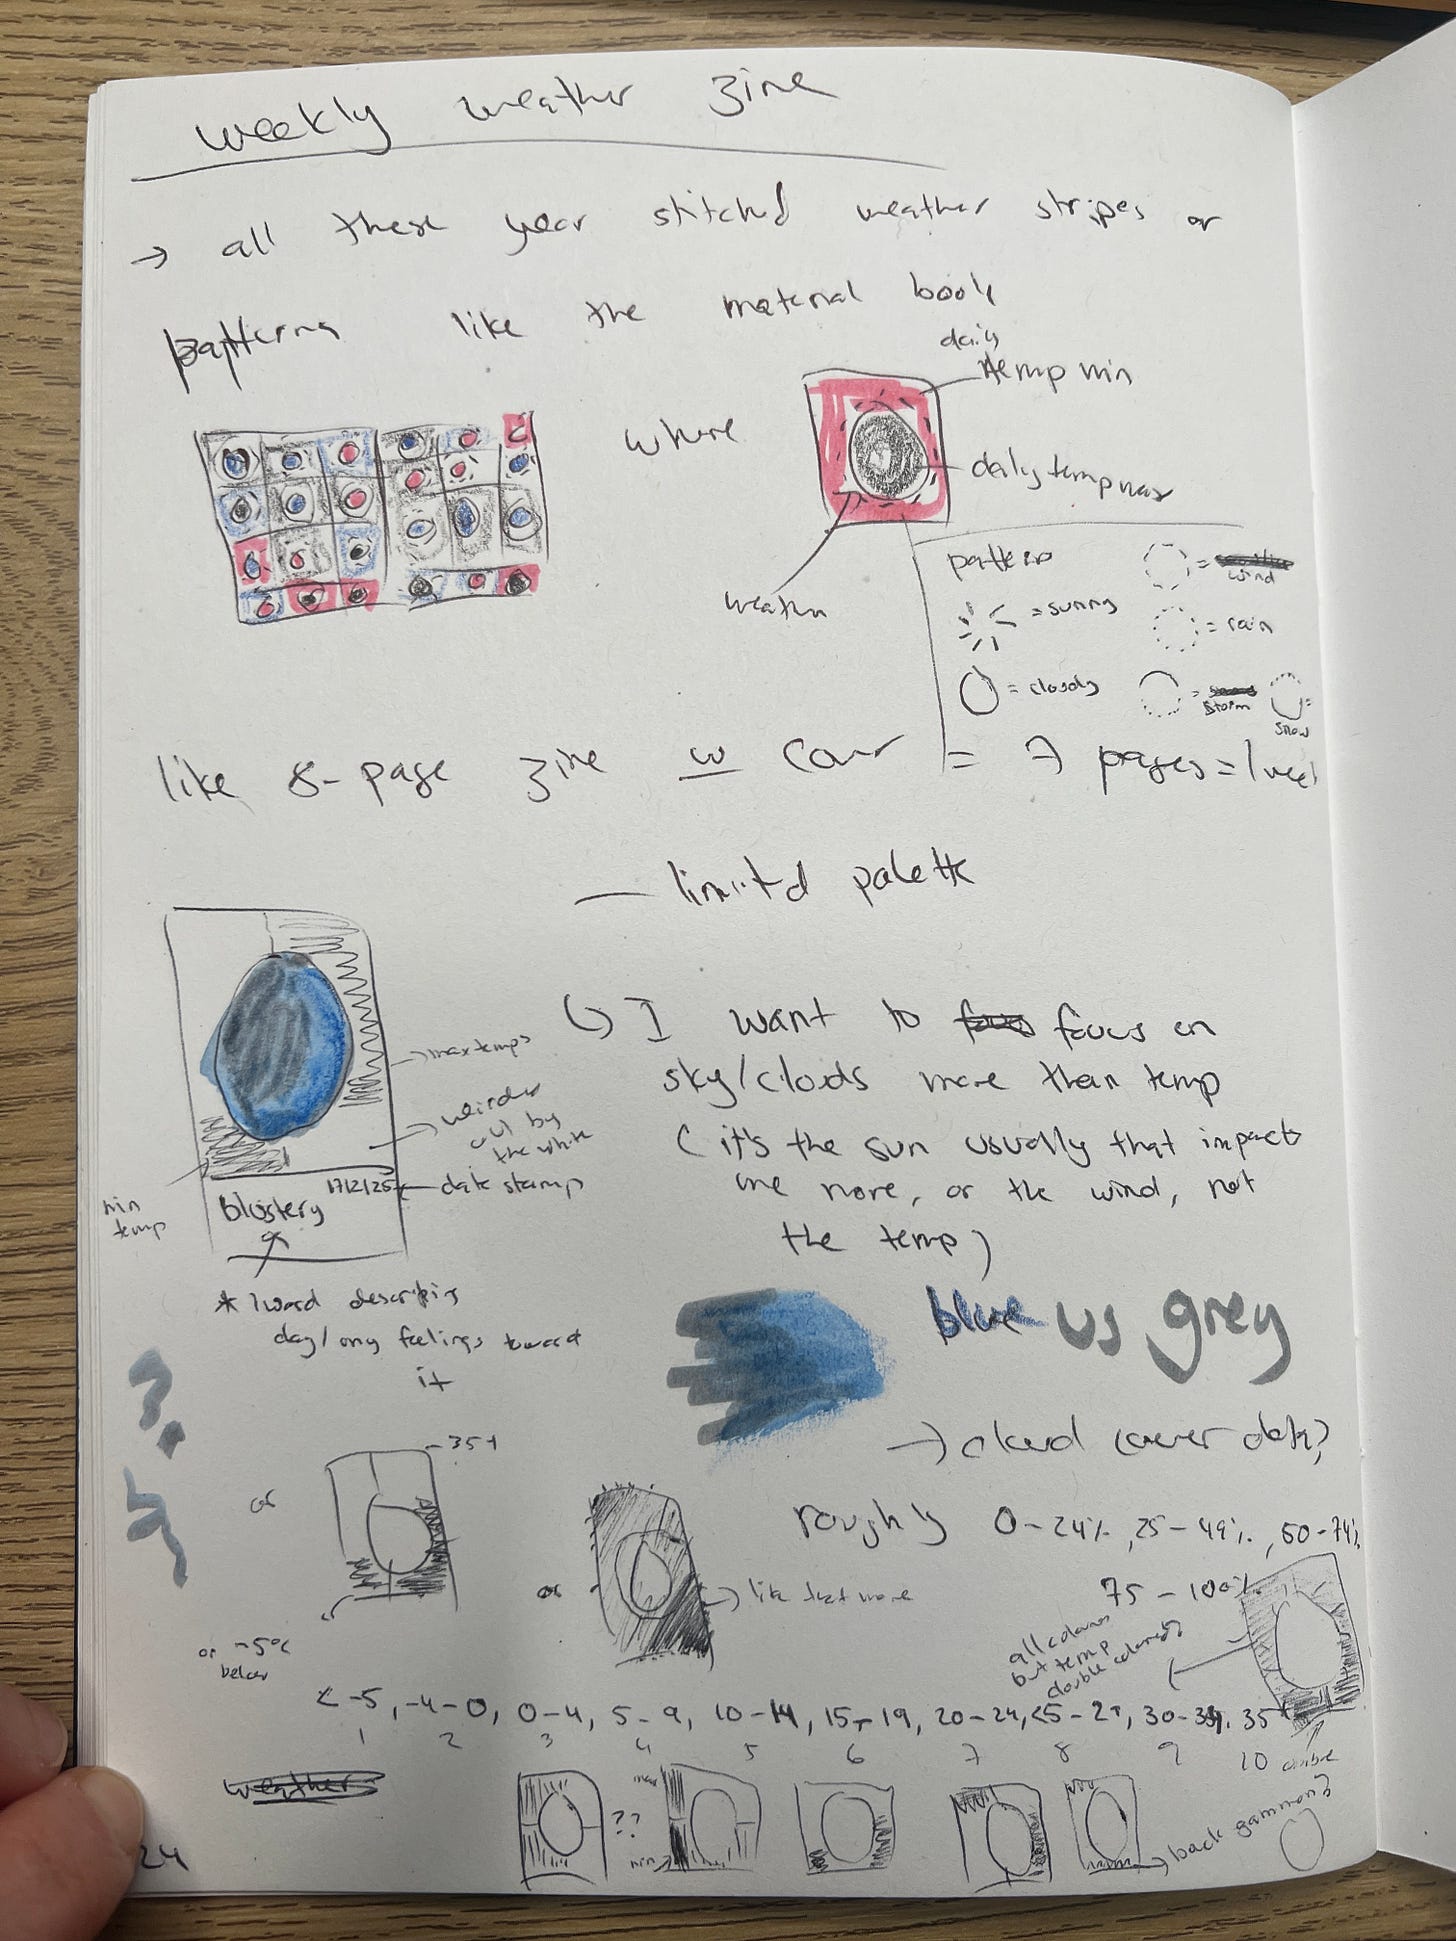 weekly weather zine
→ all these year stitched weather stripes or
patterns like the material book
where
daily
temp min
daily temp max
weather
pattern
= wind
= sunny
= rain
= cloudy
= storm
= snow
like 8-page zine w cover = 7 pages = 1 week
— limited palette
↳ I want to focus on
sky/clouds more than temp
(it's the sun usually that impacts
me more, or the wind, not
the temp)
→ max temps
out by
the white
date stamp
17/2/25
min
temp
blustery
* 1 word describing
day/my feelings toward
it
blue vs grey
→ cloud cover data?
roughly 0-24%, 25-49%, 50-74%
75-100%
or
35+
or
→ like that more
or -5°c
below
all colours
but temp
double coloured?
< -5, -4-0, 0-4, 5-9, 10-14, 15-19, 20-24, 25-29, 30-34, 35+
1 2 3 4 5 6 7 8 9 10
??
max
min
back gammon?
24